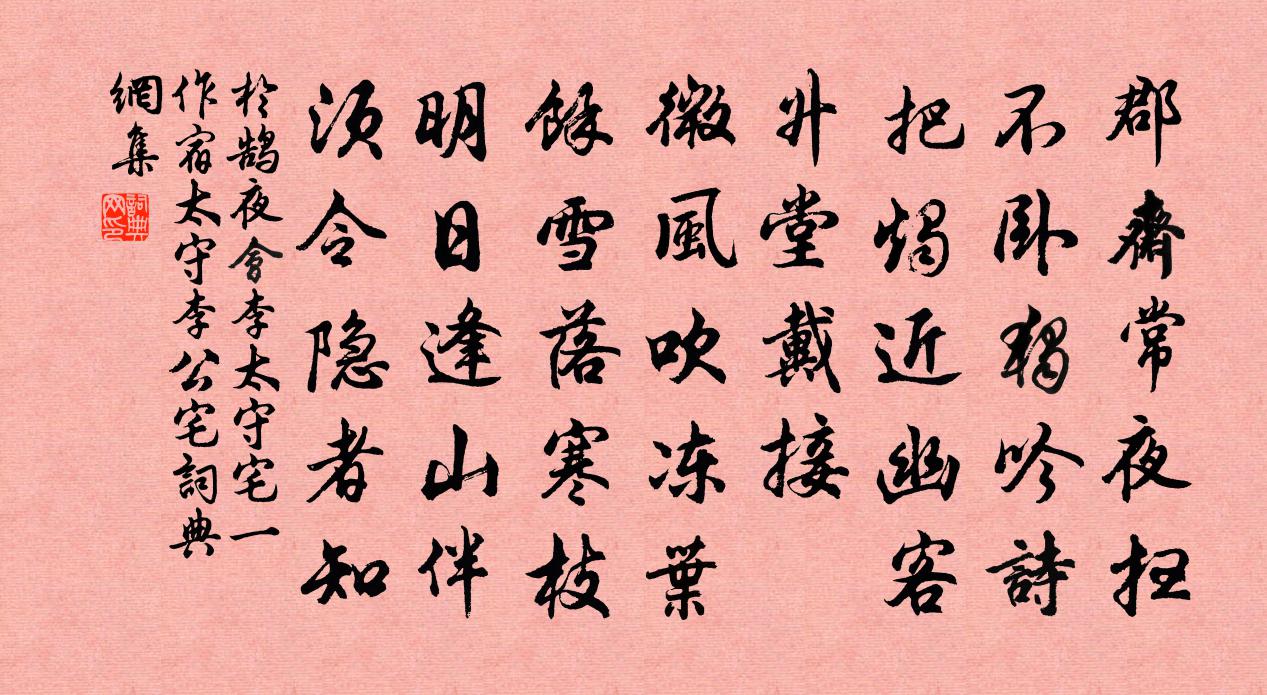 郡齋常夜扫
不卧獨吟詩
把燭近幽客
升堂戴接
微風吹冻葉
餘雪落寒枝
明日逢山伴
须令隐者知
於鵠夜會李太守宅一
作宿太守李公宅詞典
網集
詞典
网印